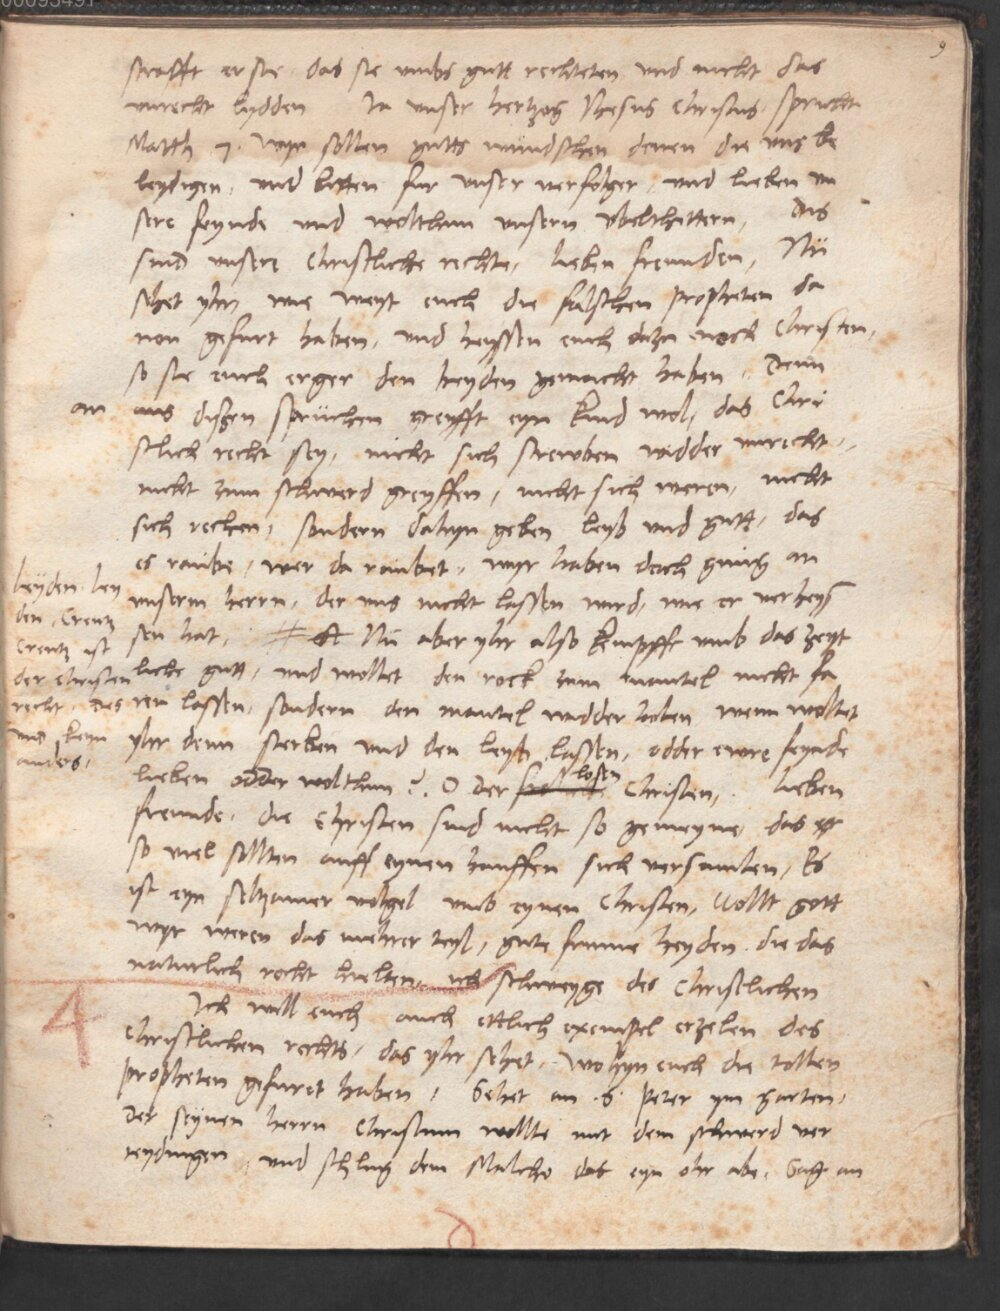 00093491
9
strafft er sie das sie umbs gutt rechteten und nicht das
unrecht lydden Ja unser hertzog Jhesus Christus spricht
Matth 7. Wyr sollen gutts wundschen denen die uns be
leydigen, und bitten fur unser verfolger, und lieben un
sere feynde und wolthun unsern ubelthettern, Dis
sind unsere Christliche rechte, lieben freunden, Nu
sehet yhr, wie weyt euch die falschen propheten da
von gefurt haben, und heyssen euch dazu noch Christen,
so sie euch erger den heyden gemacht haben. Denn
an aus dißen spruchen greyfft eyn kind wol, das Chri
stlich recht sey, nicht sich strewben widder unrecht,
nicht zum schwerd greyffen, nicht sich weren, nicht
sich rechen, sondern dahyn geben leyb und gutt, das
es raube, wer da raubet, wyr haben doch gnug an
unserm herrn, der uns nicht lassen wird, wie er verheys
sen hat, Nu aber yhr also kempfft umb das zeyt
liche gutt, und wollet den rock zum mantel nicht fa
ren lassen, sondern den mantel widder holen, wenn wollet
yhr denn sterben und den leyb lassen, odder ewre feynde
lieben odder wolthun? O der losen Christen, Lieben
freunde, die Christen sind nicht so gemeyne, das
so viel sollten auff eynen hauffen sich versamlen, Es
ist eyn seltzamer vohgel umb eynen Christen, Wollt gott
wyr weren das mehrer teyl, gute frume heyden, die das
naturlich recht hielten, ich schweyge des Christlichen
leyden ley
den, Creutz
Creutz ist
der Christen
recht, des
und keyn
anders,
4
Ich will euch auch ettlich exempel erzelen des
Christlichen rechts, das yhr sehet, wohyn euch die tollen
propheten gefuret haben, Sehet an .S. Peter ym garten,
der seynen herrn Christum wollte mit dem schwerd ver
teydingen, und schlug dem Malcho das eyn ohr abe. Sagt an